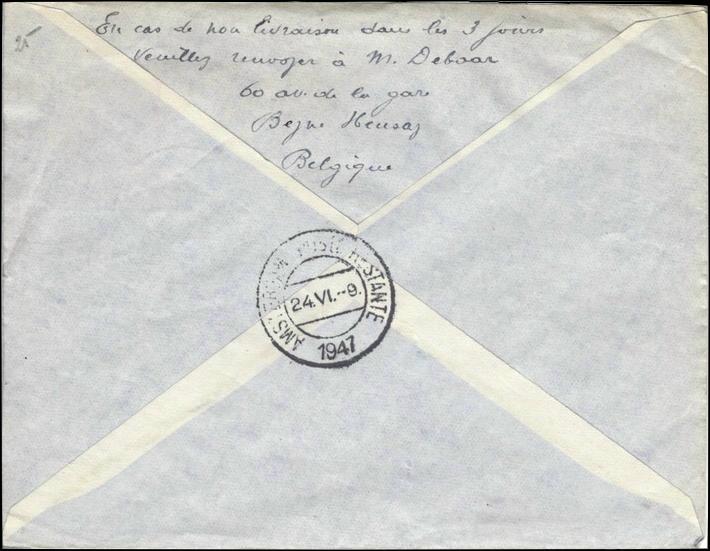 25
En cas de non livraison dans les 3 jours
Veuillez renvoyer à M. Debaar
60 av. de la gare
Beyne Heusay
Belgique
AMSTERDAM POSTE RESTANTE
24.VI.--9.
1947